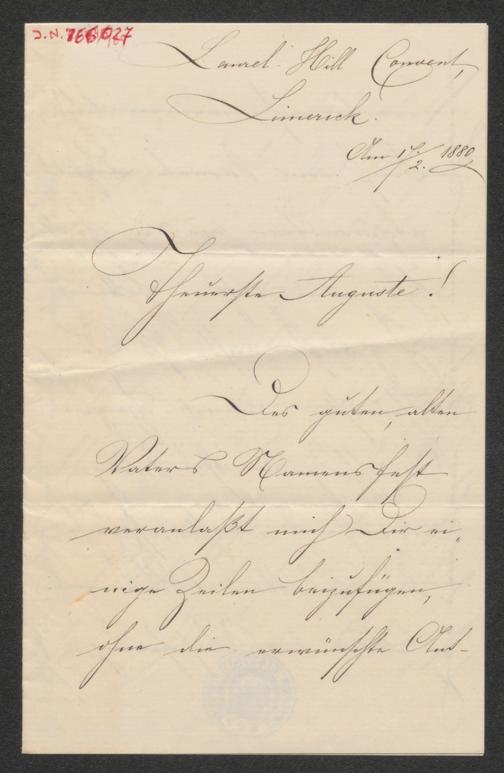 J.N. 766.027
Laurel Hill Convent,
Limerick.
Am 17/2. 1880
Theuerste Auguste!
Des guten, alten
Vaters Namensfest
veranlaßt mich Dir ei-
nige Zeilen beizufügen,
ohne die erwünschte Ant-